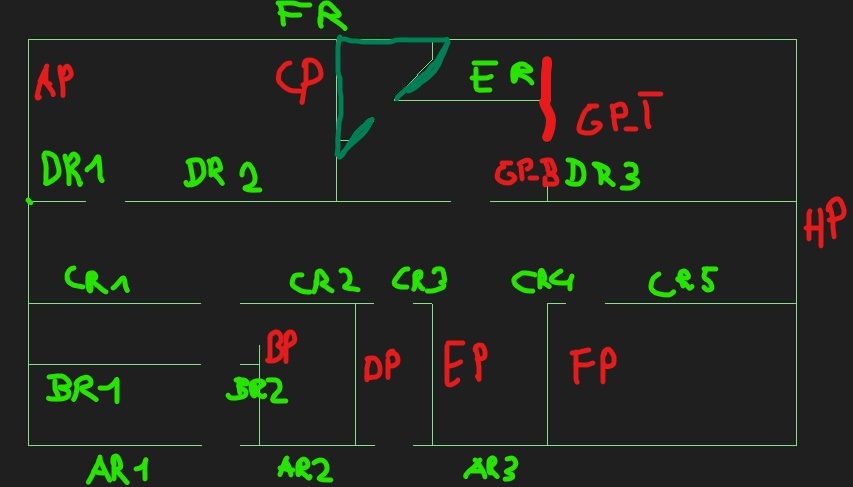 FR
AP CP ER GP_T
DR1 DR2 GP_B DR3
HP
CR1 CR2 CR3 CR4 CR5
BP DP EP FP
BR1 BR2
AR1 AR2 AR3